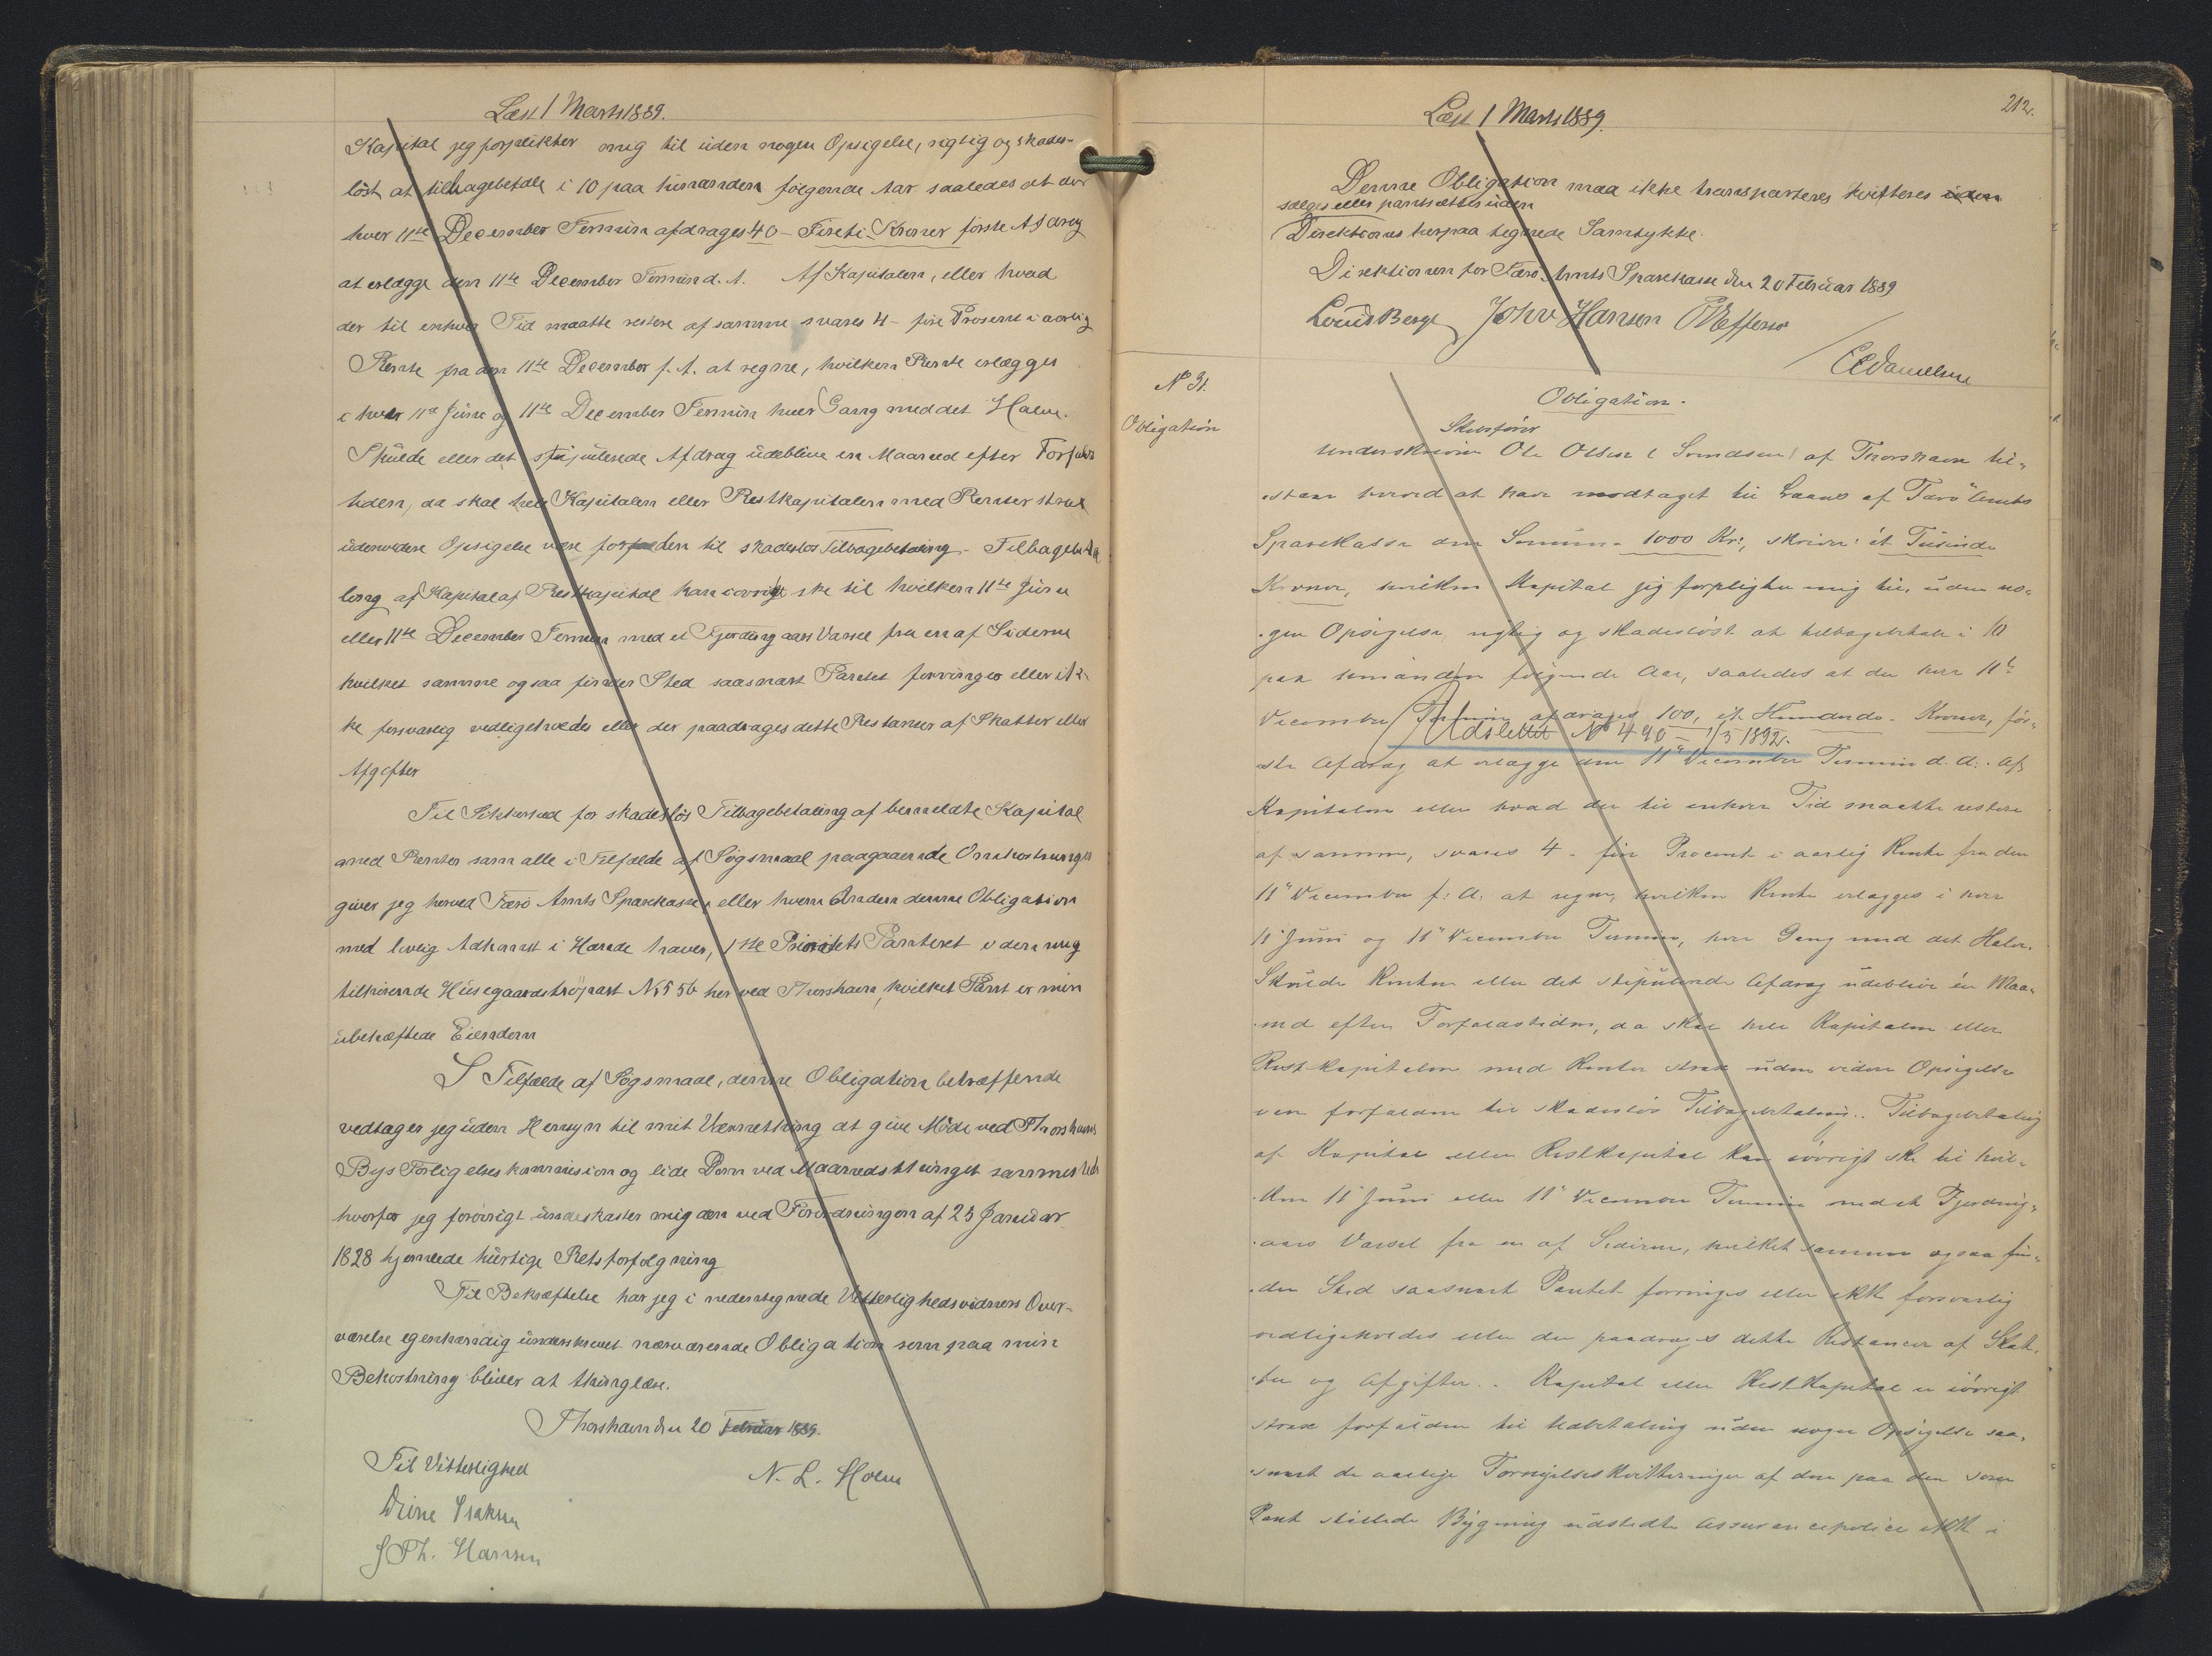 Læst 1 Marts 1889.
Kapital jeg forplikter mig til uden nogen Opsigelse, rigtig og skades-
löst at tilbagebetale i 10 paa hinanden følgende Aar saaledes at der
hver 11te December Termin afdrages 40 - Fireti - Kroner förste Afdrag
at erlægge den 11te December Termin d. A. Af Kapitalen, eller hvad
der til enhver Tid maatte restere af samme svares 4 - fire Prosent i aarlig
Rente fra den 11te December f. A. at regne, hvilken Rente erlægges
i hver 11te Juni og 11te December Termin hver Gang med det Halve.
Skulde eller det stipulerede Afdrag udeblive en Maaned efter Forfalds
tiden, da skal hele Kapitalen eller Restkapitalen med Renter strax
uden videre Opsigelse være forfalden til skadeslos Tilbagebetaling. - Tilbagebeta
ling af Kapital af Restkapital kan iövrigt ske til hvilken 11te Juni
eller 11te December Termin med et Fjerdingaars Varsel fra en af Siderne
hvilket samme ogsaa finder Sted saasnart Pantet forringes eller ik-
ke forsvarlig vedligeholdes eller der paadrages dette Restancer af Skatter eller
Afgifter
Til Sikkerhed for skadeslös Tilbagebetaling af bemeldte Kapital
med Renter samt alle i Tilfælde af Sögsmaal paagaaende Omkostninger
giver jeg herved Færö Amts Sparekasse, eller hvem Anden denne Obligation
med lovlig Adkomst i Hænde haver, 1ste Prioritets Panteret i den mig
tilhörende Husegaardströpart No 556 her ved Thorshavn, hvilket Pant er min
ubehæftede Eiendom
I Tilfælde af Sögsmaal, denne Obligation betræffende
vedtager jeg uden Hensyn til mit Værnething at give Möde ved Thorshavns
Bys Forligelseskommission og lide Dom ved Maanedsthinget sammesteds
hvorfor jeg forövrigt underkaster mig den ved Forordningen af 25 Januar
1828 hjemlede hurtige Retsforfölgning
Til Bekræftelse har jeg i nedentegnede Vitterlighedsvidners Over-
værelse egenhændig underskrevet nærværende Obligation som paa min
Bekostning bliver at thinglæse.
Thorshavn den 20 Februar 1889.
Til Vitterlighed
N. L. Holm
J Th. Hansen
212.
Læst 1 Marts 1889.
Denne Obligation maa ikke transporteres kvitteres uden
sælges eller pantsættes uden
Direktionens herpaa tegnede Samtykke.
Direktionen for Færö Amts Sparekasse den 20 Februar 1889
Louis Bergh John Hansen
E Danielsen
No 31.
Obligation
Obligation.
Skibsförer
Underskrevne Ole Olsen (Svendsen) af Thorshavn til-
staar herved at have modtaget til Laans af Færö Amts
Sparekasse den Summa - 1000 Kr:, skriver: et Tusinde
Kroner, hvilken Kapital jeg forpligter mig til, uden no-
gen Opsigelse, rigtig og skadeslöst at tilbagebetale i 10
paa hinanden fölgende Aar, saaledes at der hver 11te
December Termin afdrages 100, et Hundrede - Kroner, för-
Udslettet No 490 - 1/3 1892.
ste Afdrag at erlægge den 11te December Termin d. A. Af
Kapitalen eller hvad der til enhver Tid maatte restere
af samme, svares 4 - fire Procent i aarlig Rente fra den
11te December f: A. at regne, hvilken Rente erlægges i hver
11te Juni og 11te December Termin, hver Gang med det Halve.
Skulde Renten eller det stipulerede Afdrag udeblive én Maa-
ned efter Forfaldstiden, da skal hele Kapitalen eller
Restkapitalen med Renter strax uden videre Opsigelse
være forfalden til skadeslös Tilbagebetaling. Tilbagebetaling
af Kapital eller Restkapital kan iövrigt ske til hvil-
ken 11te Juni eller 11te December Termin med et Fjerding-
aars Varsel fra en af Siderne, hvilket samme ogsaa fin-
der Sted saasnart Pantet forringes eller ikke forsvarlig
vedligeholdes eller der paadrages dette Restancer af Skat-
ter og Afgifter. - Kapital eller Restkapital er iövrigt
strax forfalden til Udbetaling uden nogen Opsigelse saa-
snart de aarlige Fornyelseskvitteringer af den paa den som
Pant stillede Bygning udstedte Assurancepolice ikke i